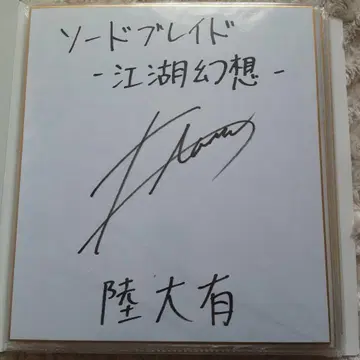 ソードブレイド
-江湖幻想-
陸大有